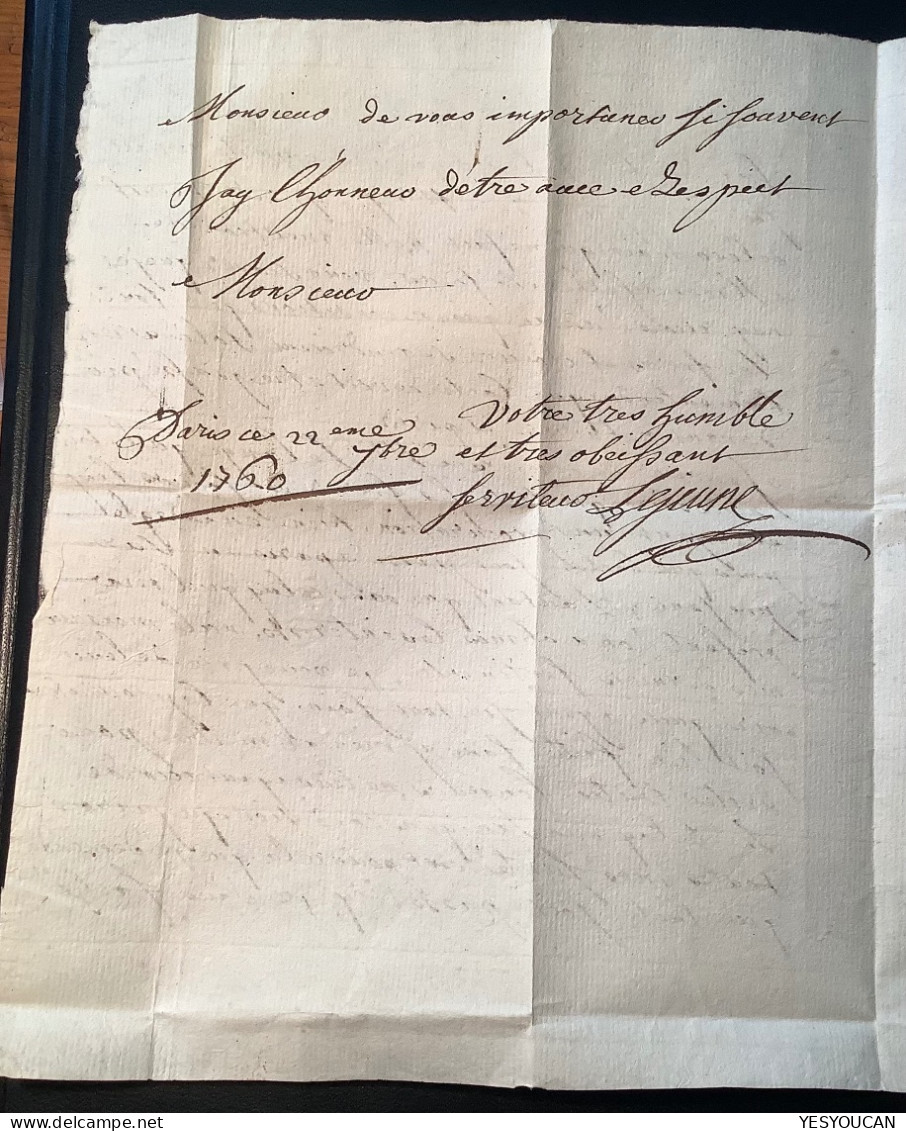 Monsieur de vous importuner si souvent
Jay l'honneur d'être avec Respect
Monsieur
Votre tres humble
Paris ce 22eme 7bre et tres obeissant
1760 serviteur Lejeune
YESYOUCAN